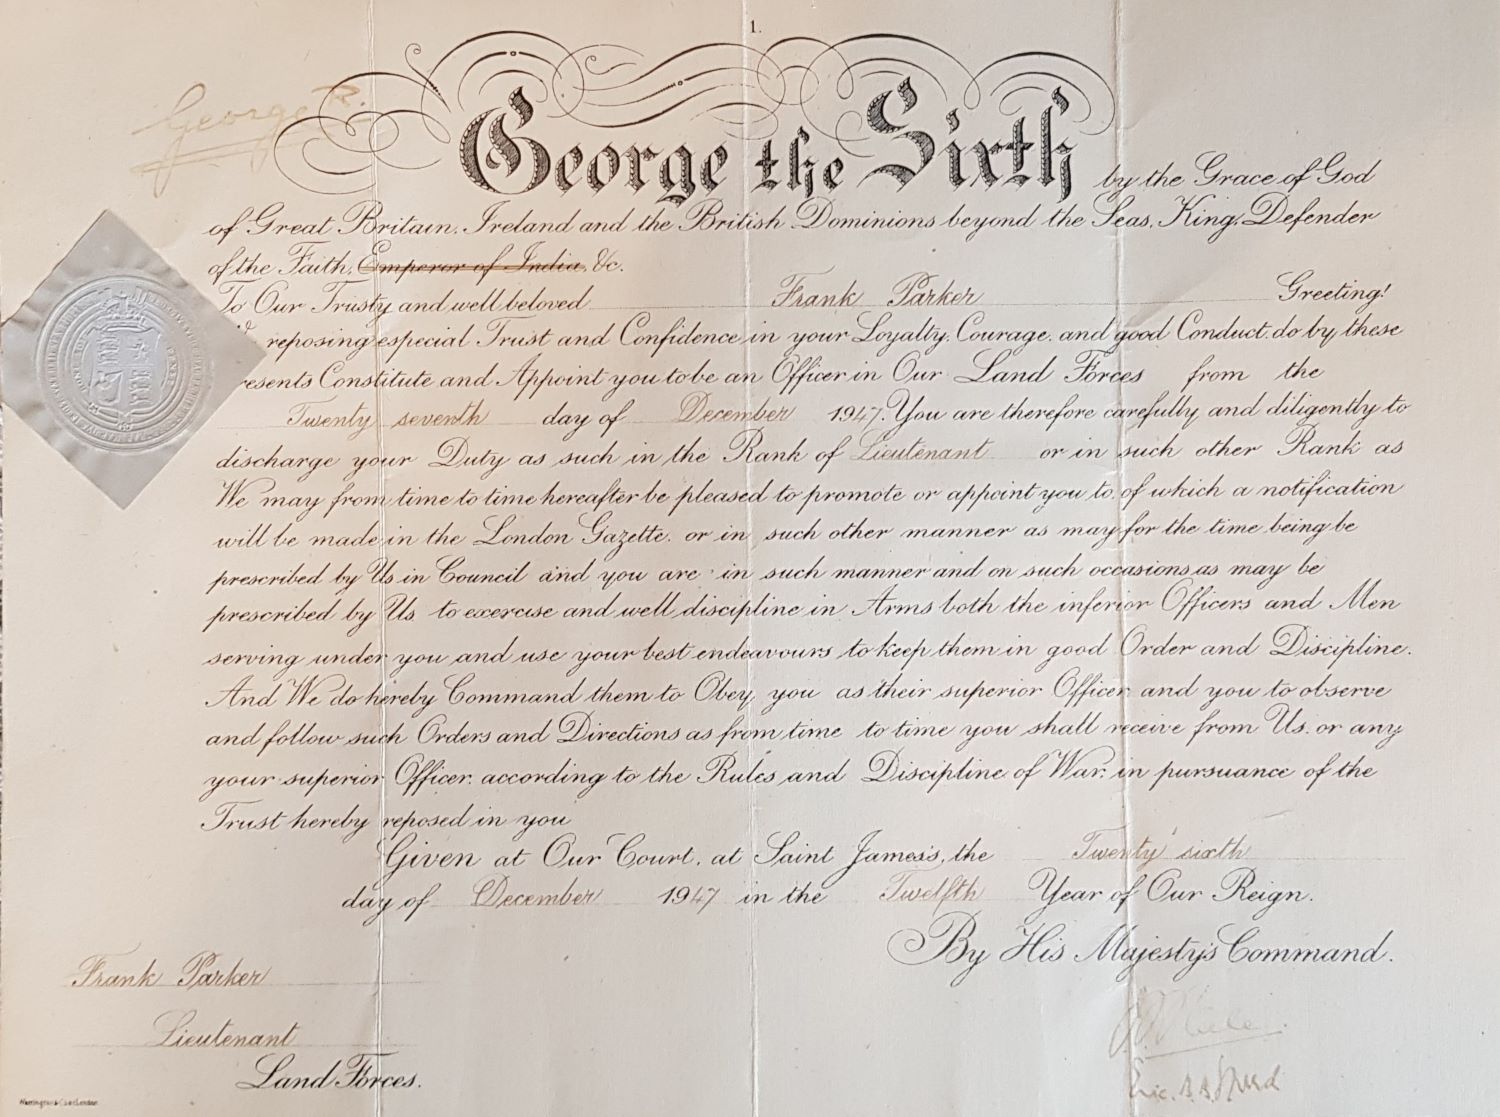 1.
George R.
George the Sixth by the Grace of God
of Great Britain, Ireland and the British Dominions beyond the Seas, King, Defender
of the Faith, Emperor of India, &c.
To Our Trusty and well beloved Frank Parker Greeting!
reposing especial Trust and Confidence in your Loyalty, Courage, and good Conduct, do by these
resents Constitute and Appoint you to be an Officer in Our Land Forces from the
Twenty seventh day of December 1947. You are therefore carefully and diligently to
discharge your Duty as such in the Rank of Lieutenant or in such other Rank as
We may from time to time hereafter be pleased to promote or appoint you to, of which a notification
will be made in the London Gazette, or in such other manner as may for the time being be
prescribed by Us in Council and you are in such manner and on such occasions as may be
prescribed by Us to exercise and well discipline in Arms both the inferior Officers and Men
serving under you and use your best endeavours to keep them in good Order and Discipline.
And We do hereby Command them to Obey you as their superior Officer and you to observe
and follow such Orders and Directions as from time to time you shall receive from Us, or any
your superior Officer, according to the Rules and Discipline of War, in pursuance of the
Trust hereby reposed in you
Given at Our Court, at Saint James's, the Twenty sixth
day of December 1947 in the Twelfth Year of Our Reign.
By His Majesty's Command.
Frank Parker
Lieutenant
Land Forces.
Eric. B. B. Speed